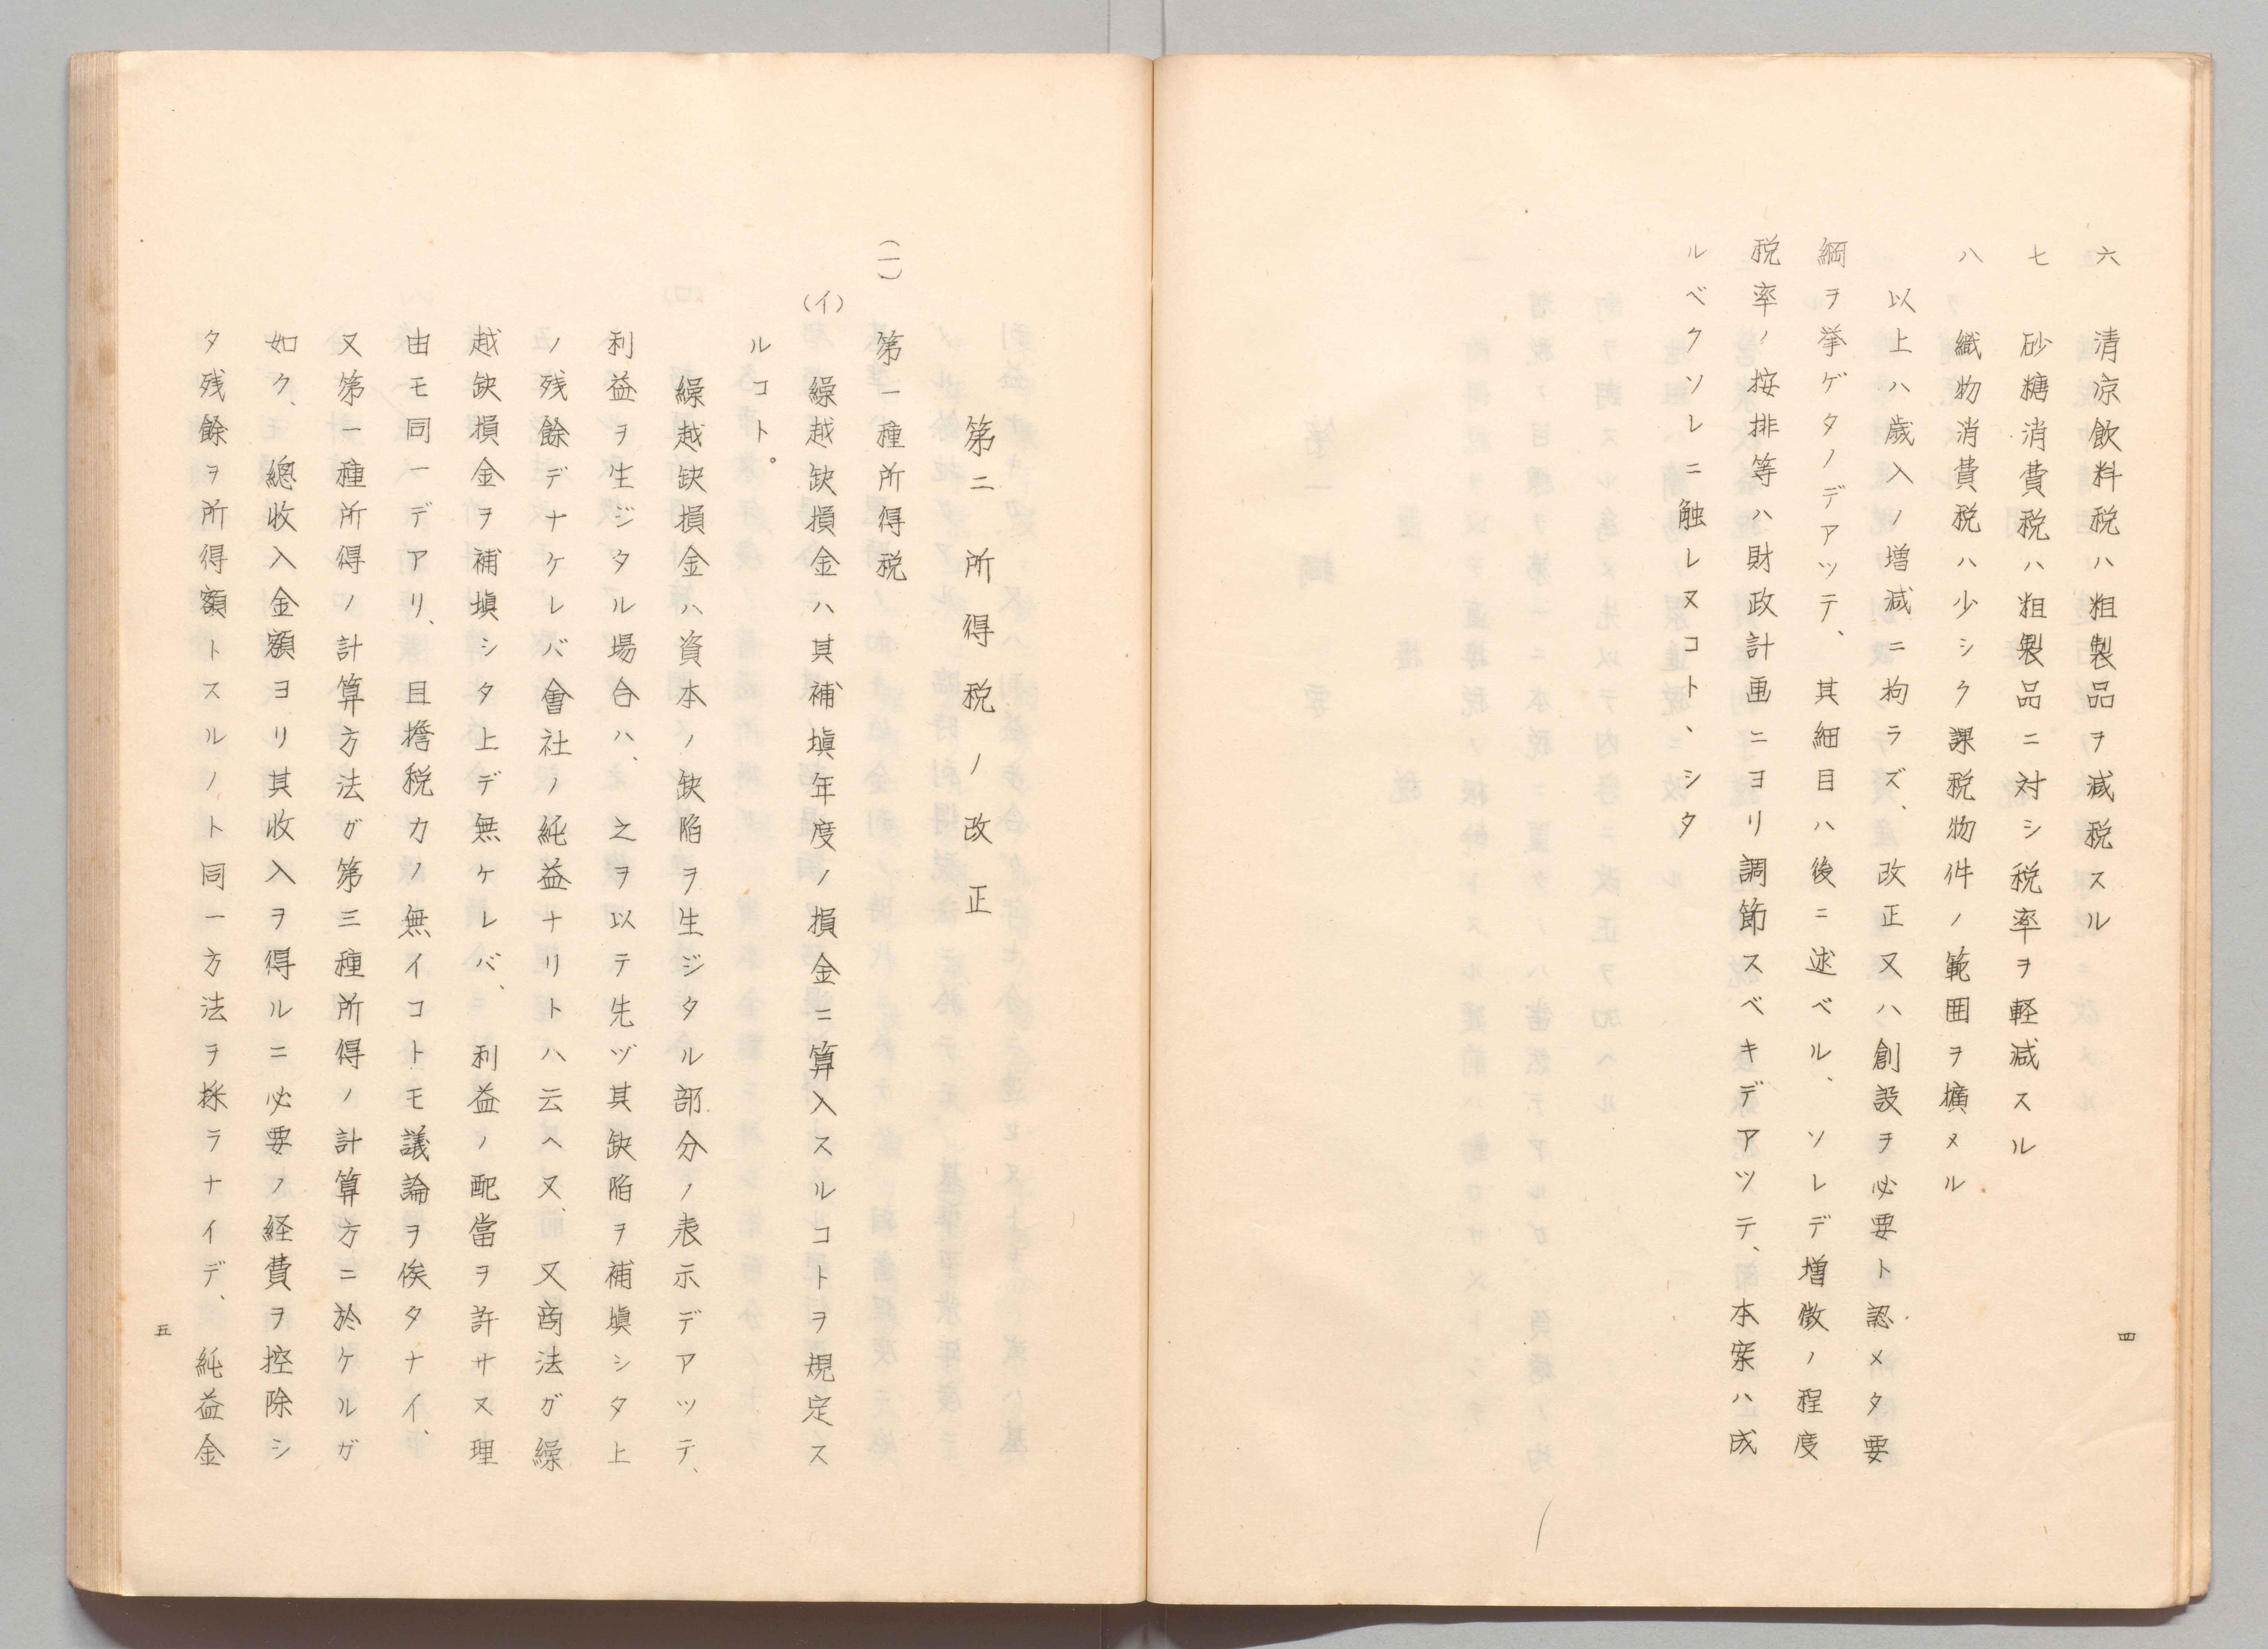 六　清凉飲料税ハ粗製品ヲ減税スル
七　砂糖消費税ハ粗製品ニ対シ税率ヲ軽減スル
八　織物消費税ハ少シク課税物件ノ範囲ヲ擴メル
以上ハ歳入ノ増減ニ拘ラズ、改正又ハ創設ヲ必要ト認メタ要
綱ヲ挙ゲタノデアツテ、其細目ハ後ニ述ベル、ソレデ増徴ノ程度
税率ノ按排等ハ財政計画ニヨリ調節スベキデアツテ、本案ハ成
ルベクソレニ触レヌコト、シタ
四
第二　所得税ノ改正
(一)　第一種所得税
(イ)　繰越缺損金ハ其補塡年度ノ損金ニ算入スルコトヲ規定ス
ルコト。
繰越缺損金ハ資本ノ缺陥ヲ生ジタル部分ノ表示デアツテ、
利益ヲ生ジタル場合ハ、之ヲ以テ先ヅ其缺陥ヲ補塡シタ上
ノ残餘デナケレバ會社ノ純益ナリトハ云ヘヌ、又商法ガ繰
越缺損金ヲ補塡シタ上デ無ケレバ、利益ノ配當ヲ許サヌ理
由モ同一デアリ、且擔税力ノ無イコトモ議論ヲ俟タナイ、
又第一種所得ノ計算方法ガ第三種所得ノ計算方ニ於ケルガ
如ク、總收入金額ヨリ其收入ヲ得ルニ必要ノ経費ヲ控除シ
タ残餘ヲ所得額トスルノト同一方法ヲ採ラナイデ、純益金
五